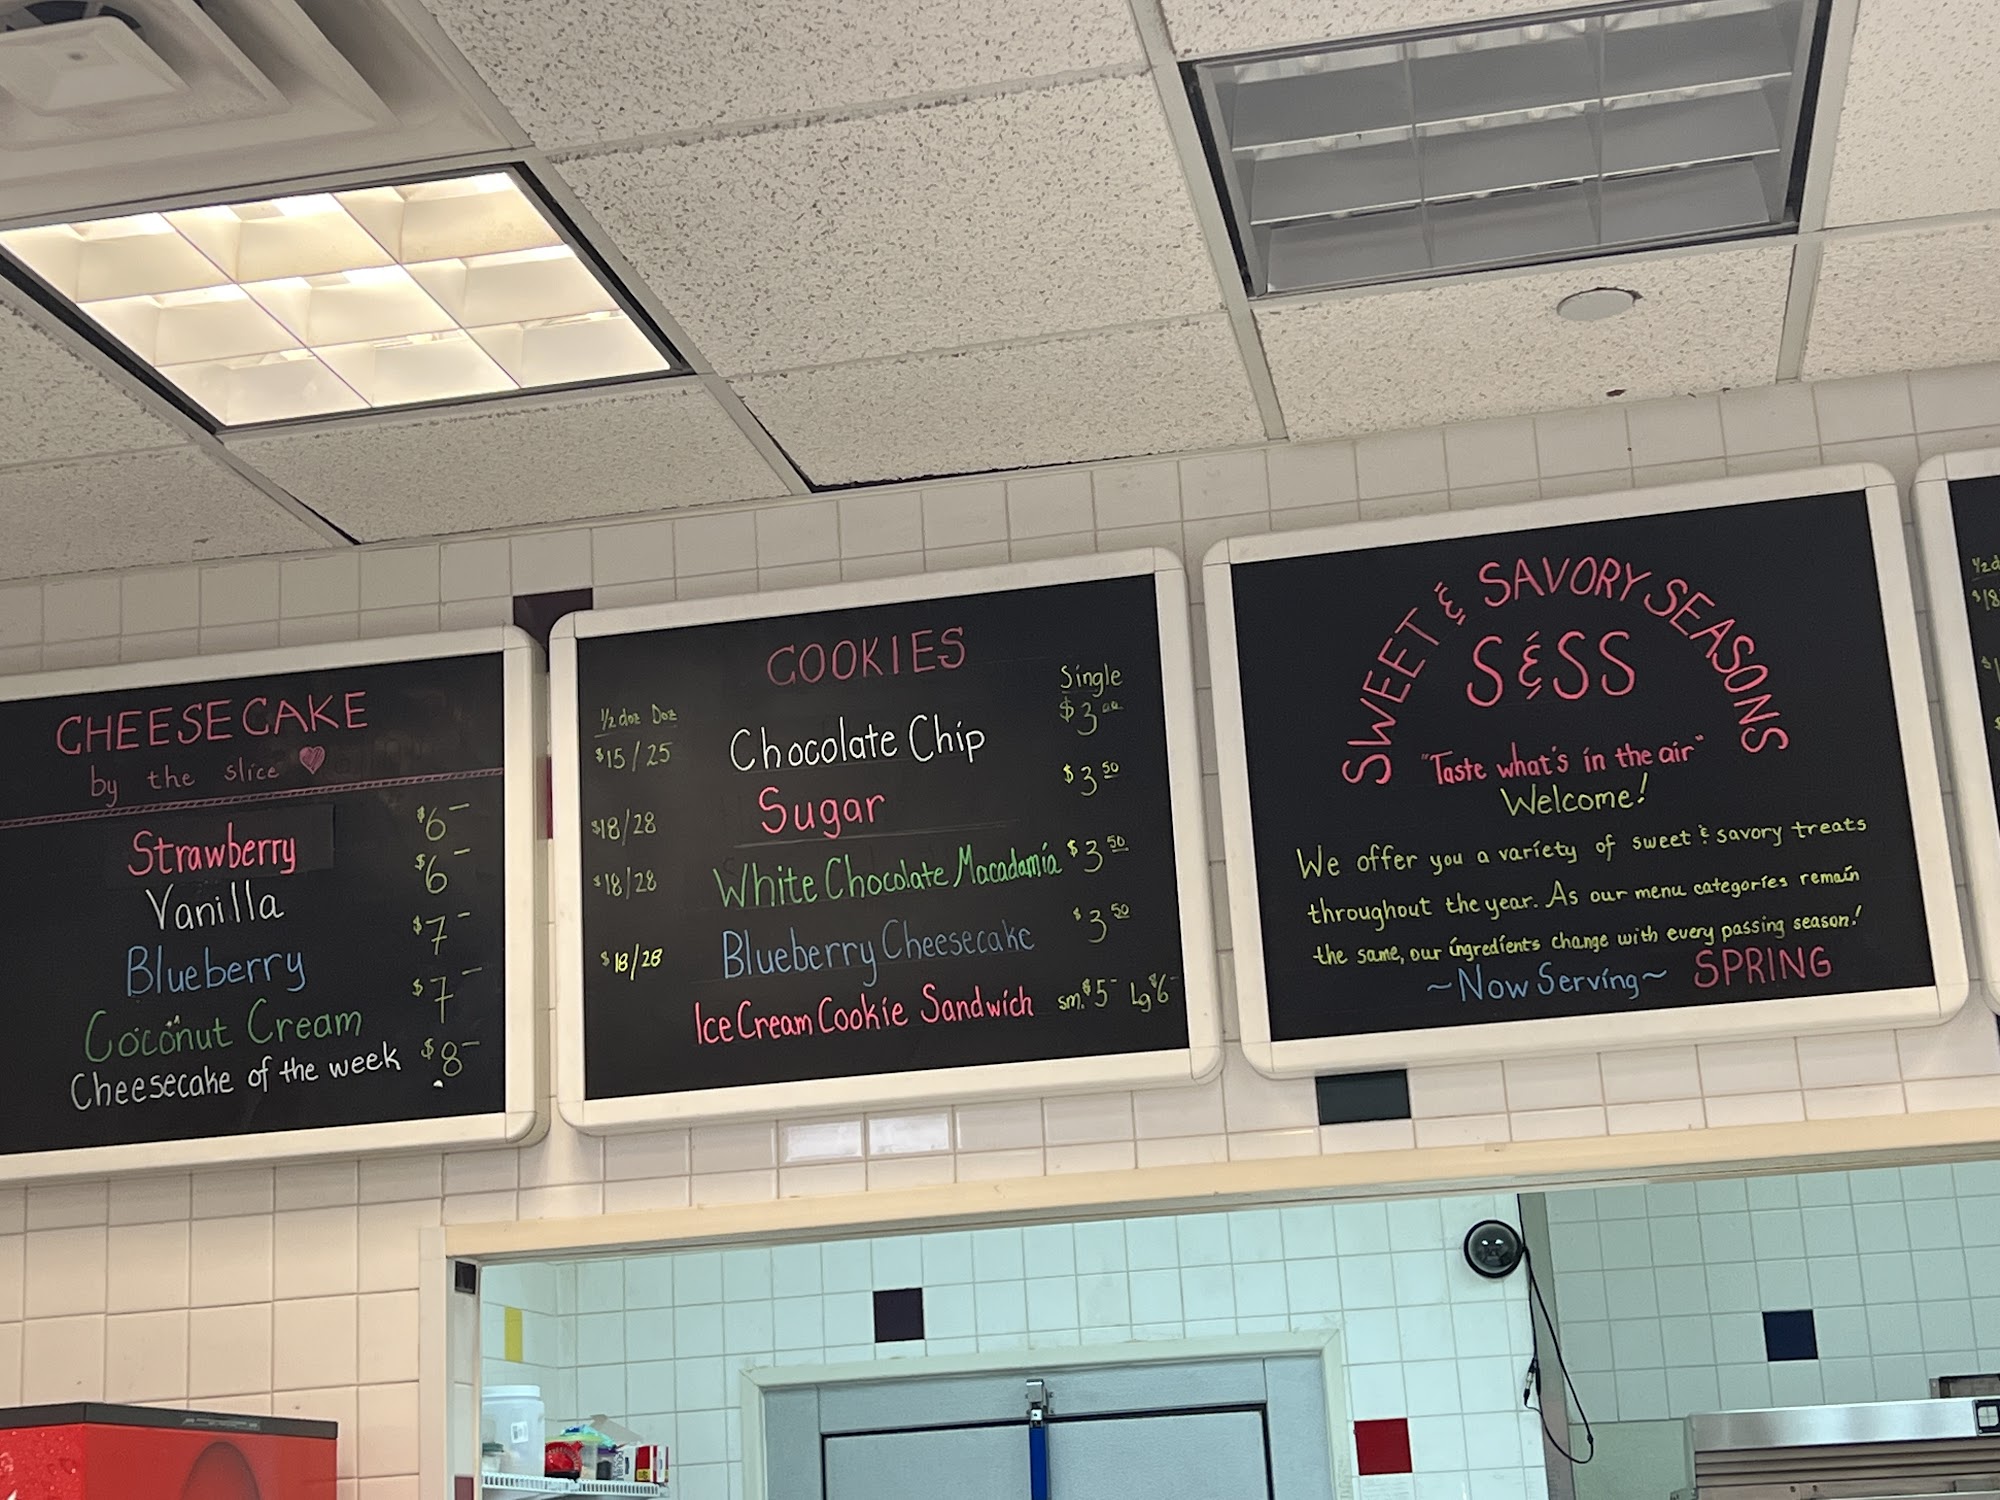 CHEESECAKE
by the slice
Strawberry $6-
Vanilla $6-
Blueberry $7-
Coconut Cream $7-
Cheesecake of the week $8-
COOKIES
½ doz Doz Single
$15/25 Chocolate Chip $3.00
$18/28 Sugar $3 50
$18/28 White Chocolate Macadamia $3 50
$18/28 Blueberry Cheesecake $3 50
Ice Cream Cookie Sandwich sm. $5- Lg $6-
SWEET & SAVORY SEASONS
S&SS
"Taste what's in the air"
Welcome!
We offer you a variety of sweet & savory treats
throughout the year. As our menu categories remain
the same, our ingredients change with every passing season!
~Now Serving~ SPRING
½ d
$18